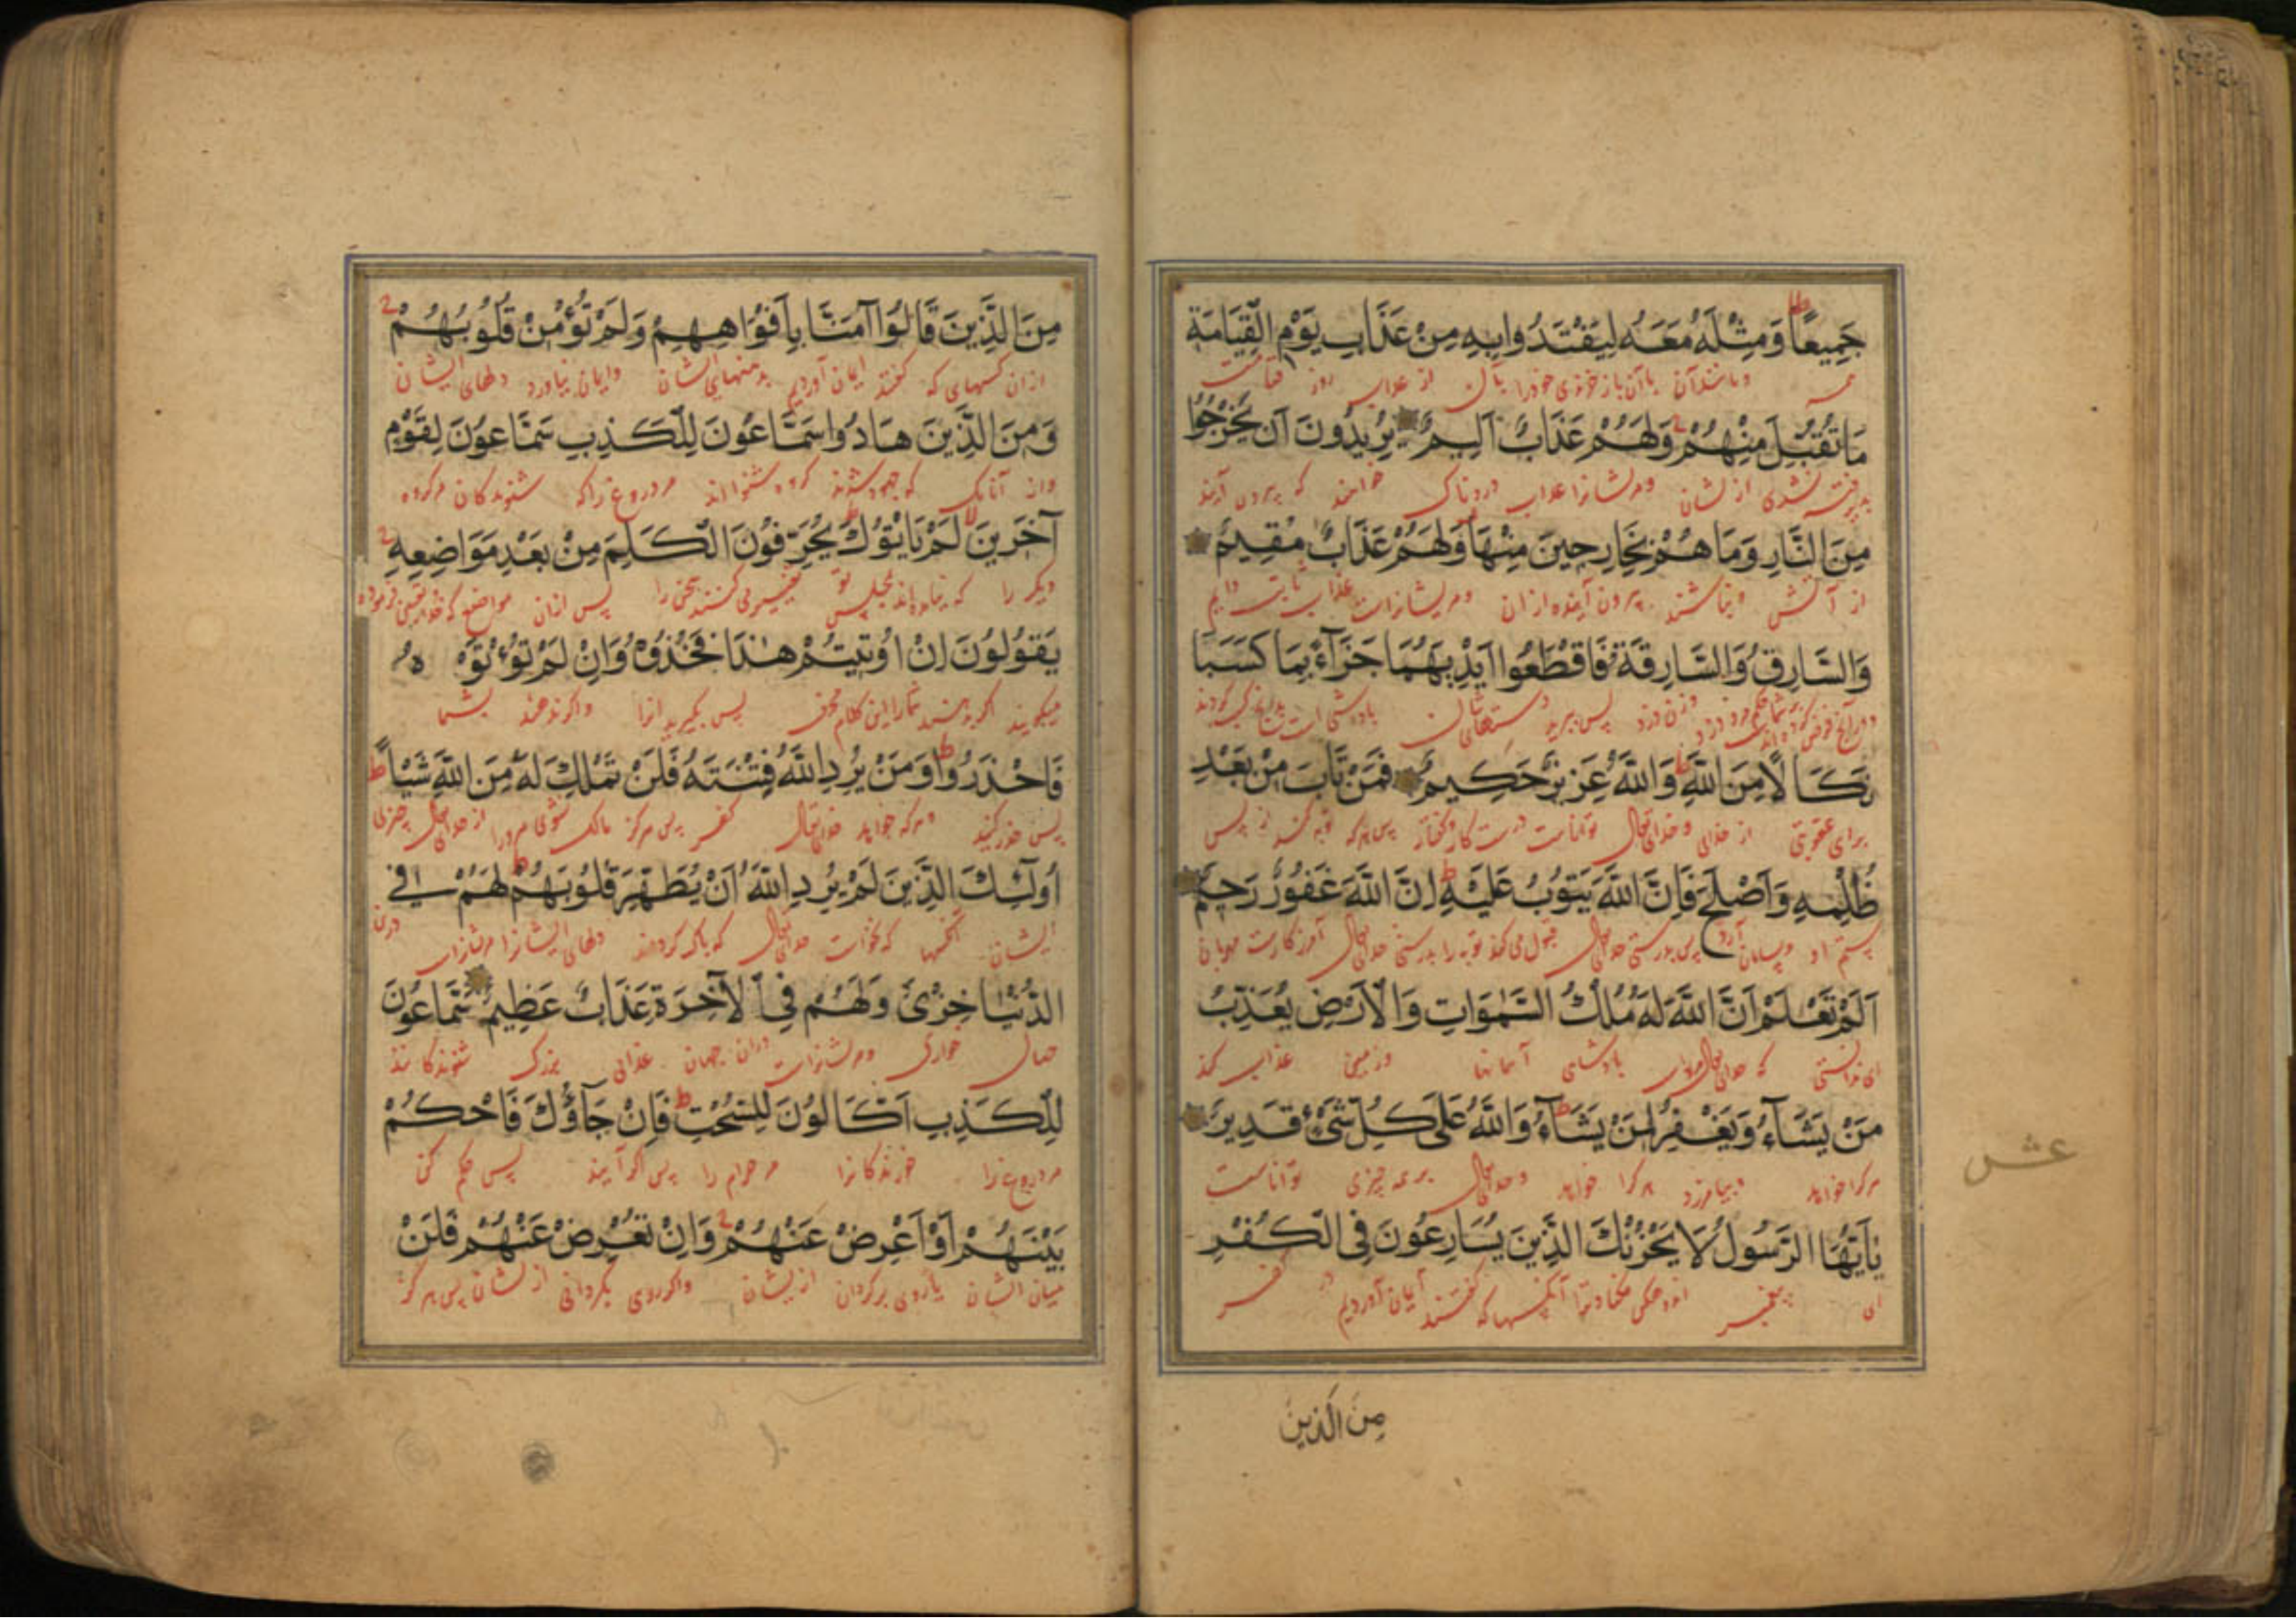 جَمِيعًا وَمِثْلَهُ مَعَهُ لِيَفْتَدُوا بِهِ مِنْ عَذَابِ يَوْمِ الْقِيَامَةِ
ومانند آن با آن باز خرندی خودرا بآن از عذاب روز قیامت
مَا تُقُبِّلَ مِنْهُمْ وَلَهُمْ عَذَابٌ اَلِيمٌ يُرِيدُونَ اَنْ يَخْرُجُوا
پذیرفته نشدی از یشان ومریشانرا عذاب دردناک خواهند که بیرون آیند
مِنَ النَّارِ وَمَا هُمْ بِخَارِجِينَ مِنْهَا وَلَهُمْ عَذَابٌ مُقِيمٌ
از آتش ونباشند بیرون آینده ازان ومریشانراست عذاب ثابت دایم
وَالسَّارِقُ وَالسَّارِقَةُ فَاقْطَعُوا اَيْدِيَهُمَا جَزَآءً بِمَا كَسَبَا
وزن دزد پس ببرید دستهای شان
نَكَالًا مِنَ اللَّهِ وَاللَّهُ عَزِيزٌ حَكِيمٌ فَمَنْ تَابَ مِنْ بَعْدِ
برای عقوبتی از خدای وخدای تعالی تواناست درست کار وگفتار پس هرکه توبه کند از پس
ظُلْمِهِ وَاَصْلَحَ فَاِنَّ اللَّهَ يَتُوبُ عَلَيْهِ اِنَّ اللَّهَ غَفُورٌ رَحِيمٌ
ستم او وبسامان آرد پس بدرستی خدای تعالی قبول می کند توبه را بدرستی خدای تعالی آمرزگارست مهربان
اَلَمْ تَعْلَمْ اَنَّ اللَّهَ لَهُ مُلْكُ السَّمٰوَاتِ وَالْاَرْضِ يُعَذِّبُ
ای ندانستی که خدای تعالی بادشاهی آسمانها وزمین عذاب کند
مَنْ يَشَآءُ وَيَغْفِرُ لِمَنْ يَشَآءُ وَاللَّهُ عَلٰى كُلِّ شَىْءٍ قَدِيرٌ
هرکرا خواهد وبیامرزد هرکرا خواهد وخدای تعالی بر همه چیزی تواناست
يَآ اَيُّهَا الرَّسُولُ لَا يَحْزُنْكَ الَّذِينَ يُسَارِعُونَ فِى الْكُفْرِ
ای پیغمبر آنکسها که گفتند ایمان آوردیم در کفر
مِنَ الَّذِينَ
عشر
مِنَ الَّذِينَ قَالُوا آمَنَّا بِاَفْوَاهِهِمْ وَلَمْ تُؤْمِنْ قُلُوبُهُمْ
ازان کسهای که گفتند ایمان آوردیم بدهنهای ایشان وایمان نیاورد دلهای ایشان
وَمِنَ الَّذِينَ هَادُوا سَمَّاعُونَ لِلْكَذِبِ سَمَّاعُونَ لِقَوْمٍ
وازان آنانک که جهود شدند مر دروغ را که شنوندگان مر گروه
آخَرِينَ لَمْ يَأْتُوكَ يُحَرِّفُونَ الْكَلِمَ مِنْ بَعْدِ مَوَاضِعِهِ
دیگر را که نیامده‌اند بمجلس تو تغییر می کنند سخن را پس ازان مواضع که
يَقُولُونَ اِنْ اُوتِيتُمْ هٰذَا فَخُذُوهُ وَاِنْ لَمْ تُؤْتَوْهُ
میگویند اگر بدهند شمارا این کلام محرف پس بگیرید انرا واگر ندهند بشما
فَاحْذَرُوا وَمَنْ يُرِدِ اللَّهُ فِتْنَتَهُ فَلَنْ تَمْلِكَ لَهُ مِنَ اللَّهِ شَيْأً
پس حذر کنید وهرکه خواهد خدای تعالی کفر پس هرگز مالک نشوی مر ورا از خدای تعالی چیزی
اُولٰٓئِكَ الَّذِينَ لَمْ يُرِدِ اللَّهُ اَنْ يُطَهِّرَ قُلُوبَهُمْ لَهُمْ فِى
ایشان آنکسها که نخواست خدای تعالی که پاک گرداند دلهای ایشانرا مریشانراست درین
الدُّنْيَا خِزْىٌ وَلَهُمْ فِى الْآخِرَةِ عَذَابٌ عَظِيمٌ سَمَّاعُونَ
جهان خواری ومریشانراست دران جهان عذابی بزرگ شنوندگانند
لِلْكَذِبِ اَكَّالُونَ لِلسُّحْتِ فَاِنْ جَآؤُكَ فَاحْكُمْ
مر دروغ را خورندگانرا مر حرام را پس اگر آیند پس حکم کن
بَيْنَهُمْ اَوْ اَعْرِضْ عَنْهُمْ وَاِنْ تُعْرِضْ عَنْهُمْ فَلَنْ
میان ایشان یا روی برگردان از یشان واگر روی بگردانی از یشان پس هرگز